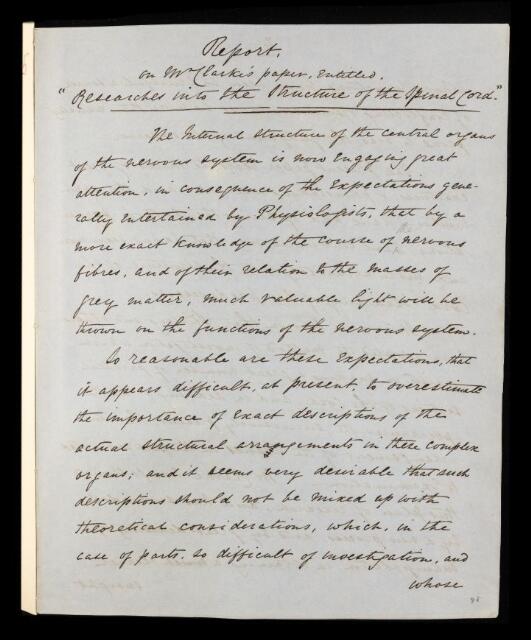 Report,
on Mr Clarke's paper, entitled,
"Researches into the Structure of the Spinal Cord."
The Internal structure of the central organs
of the nervous system is now engaging great
attention, in consequence of the expectations gene-
rally entertained by Physiologists, that by a
more exact knowledge of the course of nervous
fibres, and of their relation to the masses of
grey matter, much valuable light will be
thrown on the functions of the nervous system.
So reasonable are these expectations, that
it appears difficult, at present, to overestimate
the importance of exact descriptions of the
actual structural arrangements in these complex
organs; and it seems very desirable that such
descriptions should not be mixed up with
theoretical considerations, which, in the
case of parts, so difficult of investigation, and
whose